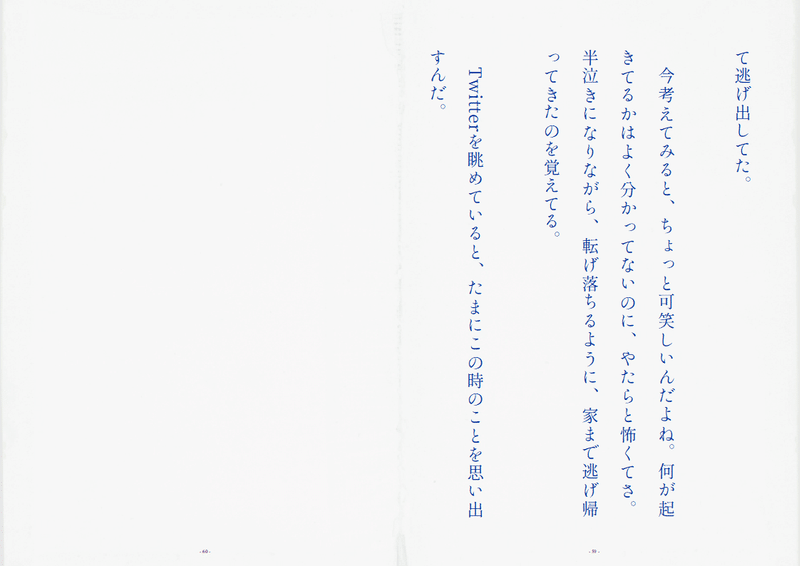 て逃げ出してた。
今考えてみると、ちょっと可笑しいんだよね。何が起
きてるかはよく分かってないのに、やたらと怖くてさ。
半泣きになりながら、転げ落ちるように、家まで逃げ帰
ってきたのを覚えてる。
Twitterを眺めていると、たまにこの時のことを思い出
すんだ。